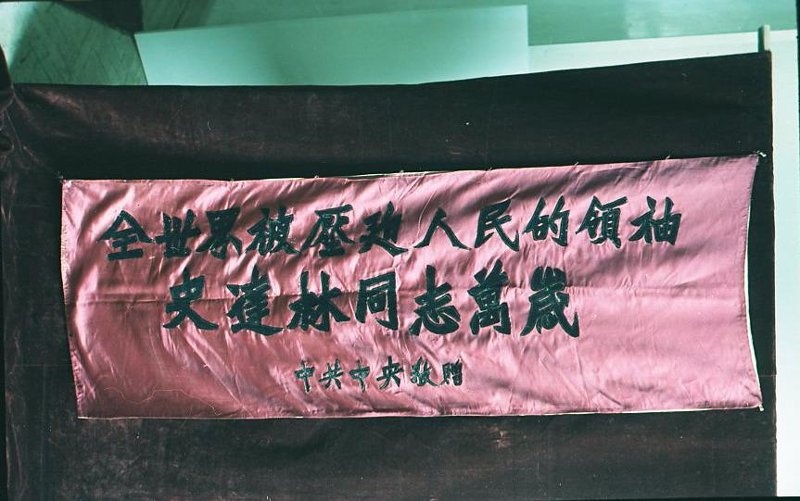 全世界被壓迫人民的領袖
史達林同志萬歲
中共中央敬贈